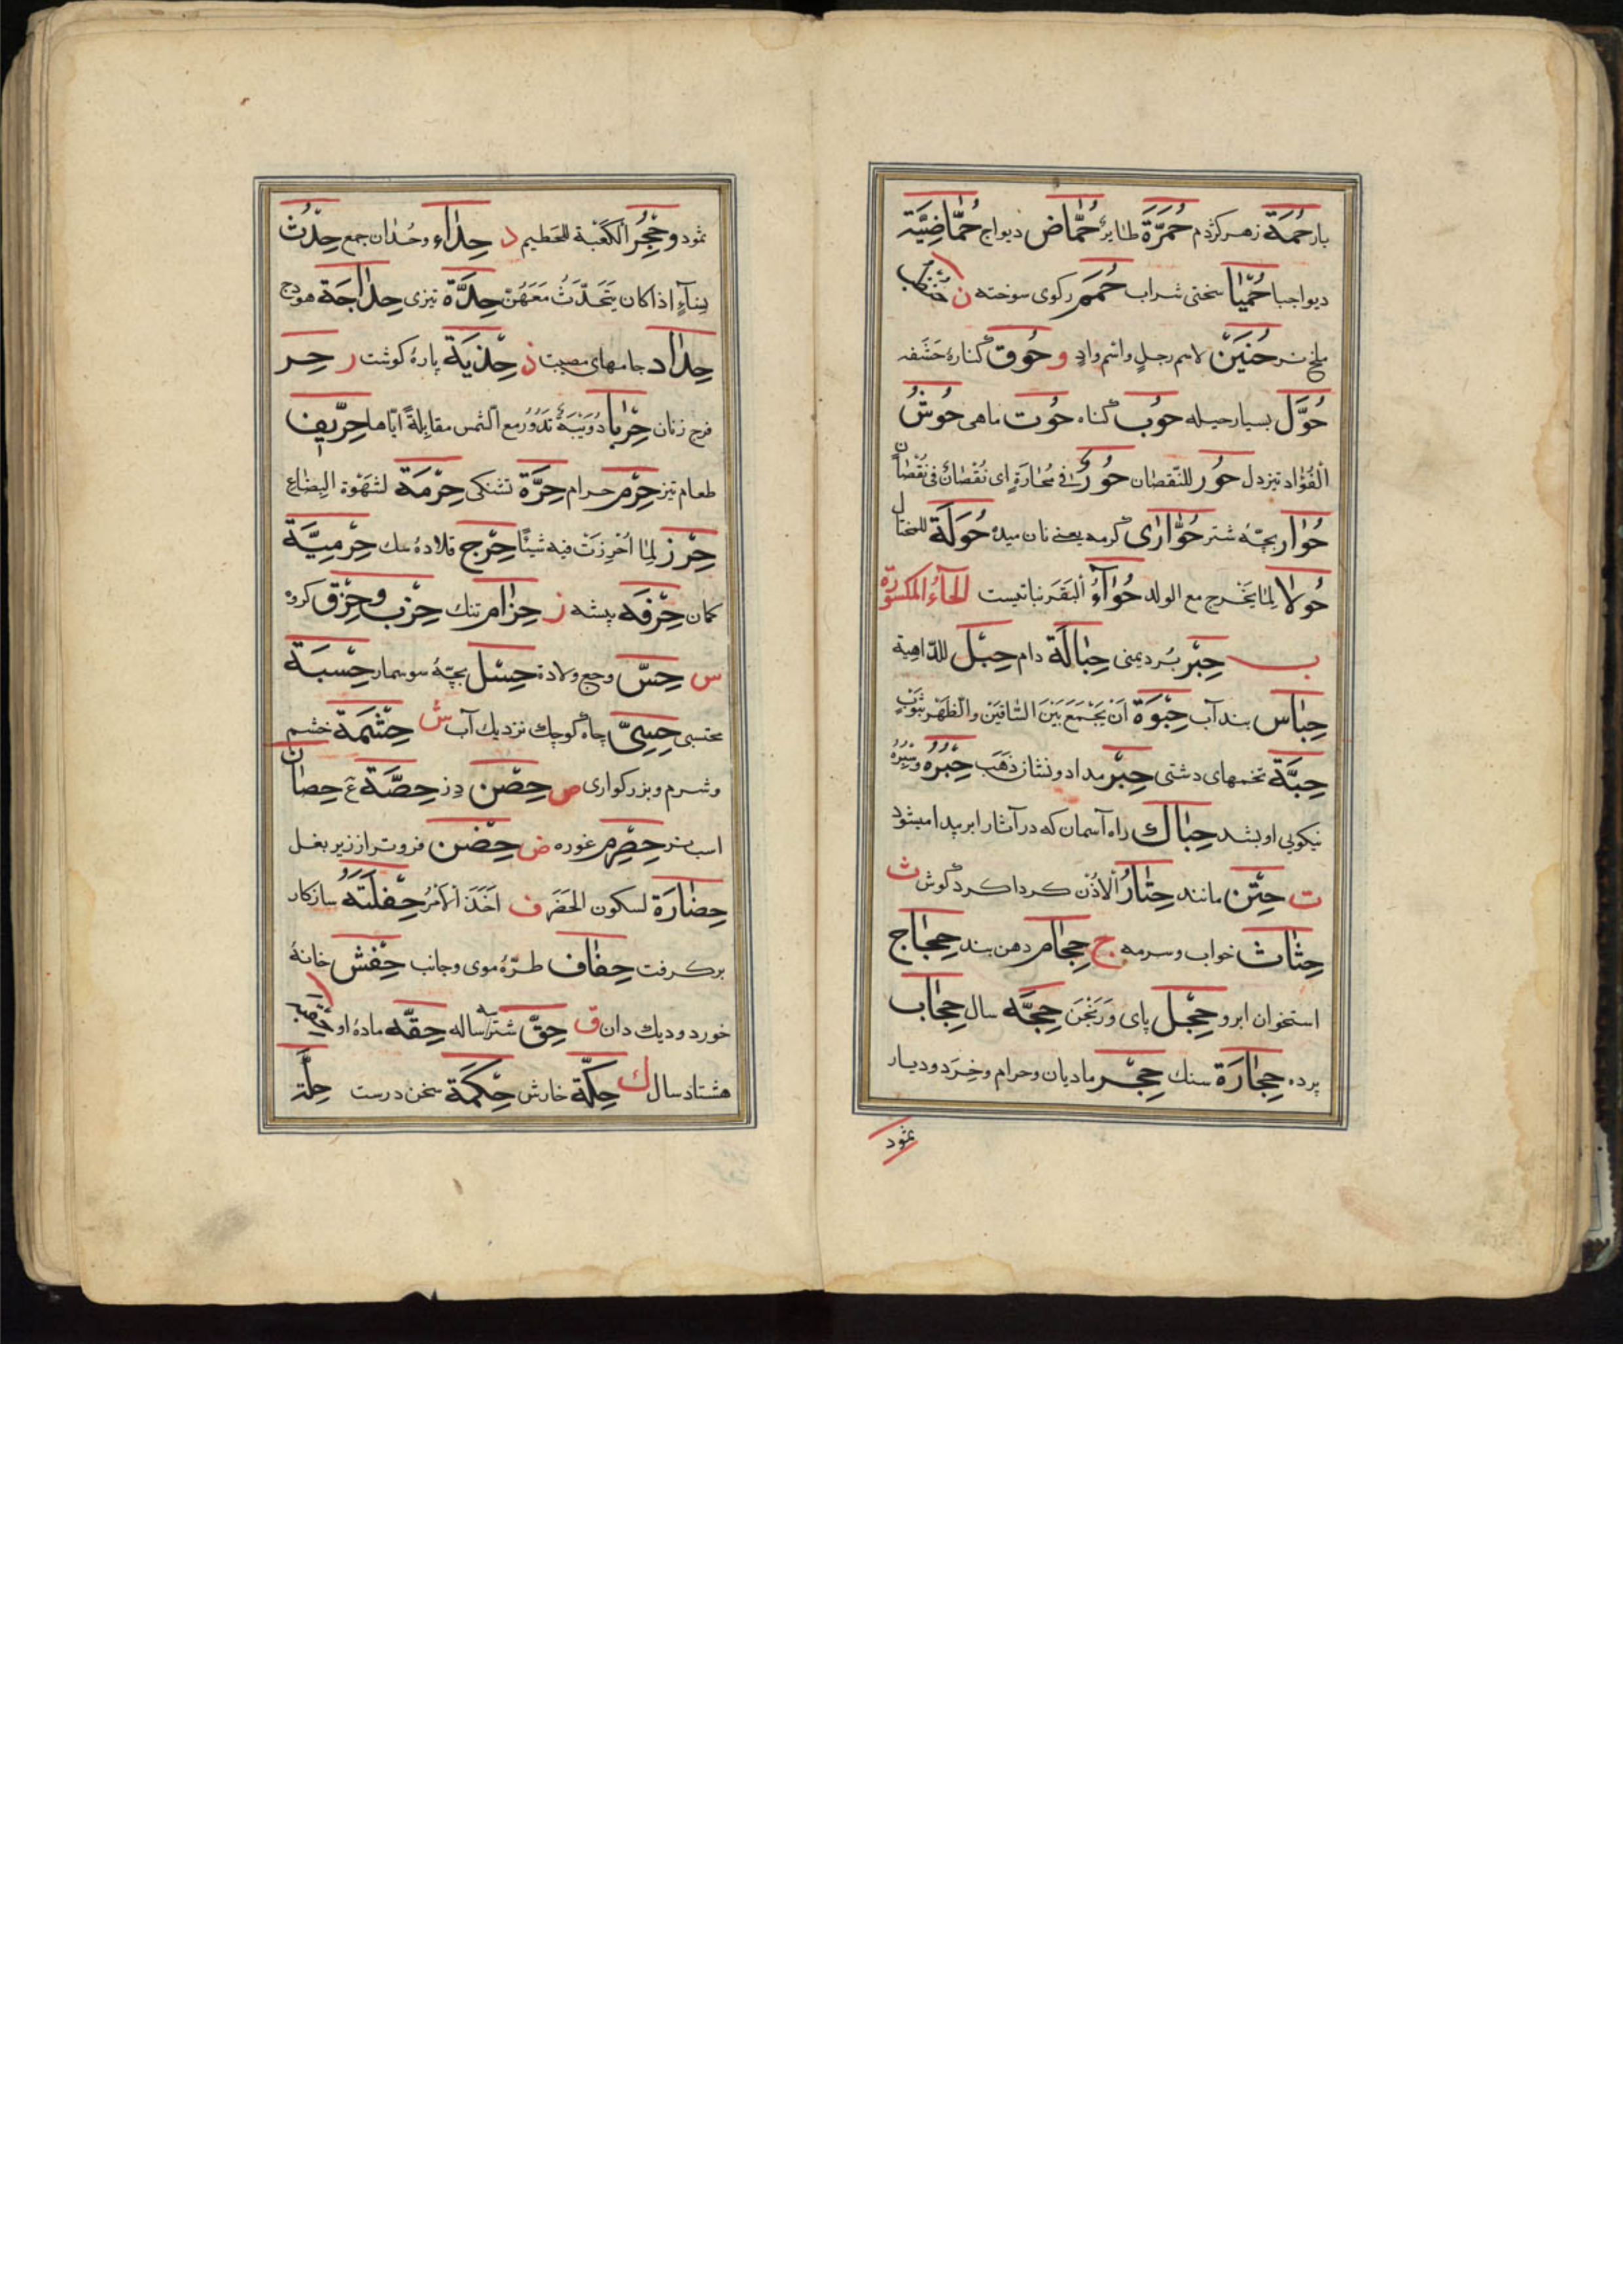 بار حُمَة زهر کژدم حُمَّرَة طایر حُمَّاض دیواج حُمَّاضِیَّة
دیواجبا حُمَّیَا سختی شراب حُمَم رکوی سوخته ن حُنْظُب
ملخ نر حُنَیْن لاسم رجلٍ واسم وادٍ و حُوق کنارهٔ حَشَفه
حُوَّل بسیار حیله حُوب کناه حُوت ماهی حُوشُ
الْفُؤاد تیزدل حُور للنّقصان حُورٌ فی مُحَارَةٍ ای نُقْصَانٌ فی نُقْصَان
حُوَار بچّهٔ شتر حُوَّارَی کرمه یعنی نان میده حُوَلَة للمختال
حُولا لِمَا یَخْرج مع الولد حُوَّآءُ الْبَقَر نباتیست الحَآءُ المکسورة
ب حِبْر بُرد یمنی حِبَالَة دام حِبْل للدّاهیة
حِبَاس بند آب حِبْوَة اَنْ یَجْمَعَ بَیْنَ السَّاقَیْن والظَّهْر بثَوْبٍ
حِبَّة تخمهای دشتی حِبْر مداد و نشان ذَهَبَ حِبْرُهُ وسِبْرُهُ
نیکویی او بشد حِبَاك راه آسمان که در آثار ابر پیدا میشود
ت حِتْن مانند حِتَارُ الْاُذُن کرداکرد کوش ث
حِثَاث خواب و سرمه ج حِجَام دهن بند حِجَاج
استخوان ابرو حِجْل پای وَرَنْجَن حِجَّه سال حِجَاب
پرده حِجَارَة سنك حِجْر مادیان و حرام و خِرَد و دیار
ثمود
ثمود و حِجْرُ الْکَعْبَة للحَطیم د حِدَاء و حُدَان جمع حِدْثُ
نِسَآءٍ اذا کان یَتَحَدَّثُ مَعَهُنّ حِدَّة تیزی حِدَاجَة هودج
حِدَاد جامهای مصیبت ذ حِذْیَة پارهٔ کوشت ر حِر
فرج زنان حِرْبَا دُوَیْبَةٌ تَدُورُ مع الشّمس مقابِلةً ایّاها حِرِّیف
طعام تیز حِرْم حرام حِرَّة تشنکی حِرْمَة لشَهْوة البِضَاع
حِرْز لِمَا اُحْرِزَتْ فیه شیئًا حِرْج قلادهٔ سك حِرْمِیَّة
کمان حِرْفَه پیشه ز حِزَام تنك حِزْب و حِزْق کروه
س حِسّ وجع ولادة حِسْل بچّهٔ سوسمار حِسْبَة
محتسبی حِسِیّ چاه کوچك نزدیك آب ش حِشْمَة خشم
و شرم و بزرکواری ص حِصْن دز حِصَّة ع حِصَان
اسب نر حِصْرِم غوره ض حِضْن فروتر از زیر بغل
حِضَارَة لسکون الحَضَر ف اَخَذَ الْاَمْرُ حِفْلَتَهُ ساز کار
برکرفت حِفَاف طرّهٔ موی و جانب حِفْش خانهٔ
خورد و دیك دان ق حِقّ شتر ساله حِقَّه مادهٔ او حِقْبَة
هشتاد سال ك حِکَّة خارش حِکْمَة سخن درست حِلَّة